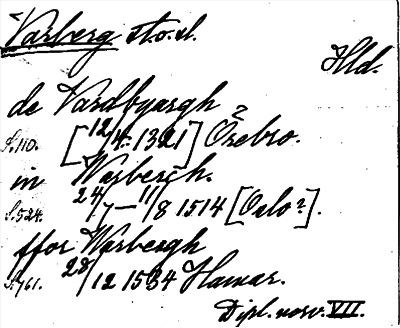 Varberg st.o.sl.
Hld.
de Vardbyærgh
S.110. [12/4. 1321] Örebro.?
in Warbergh.
S.524. 24/7 — 11/8 1514 [Oslo?].
ffor Warbergh
S.761. 28/12 1534 Hamar.
Dipl. norv. VII.